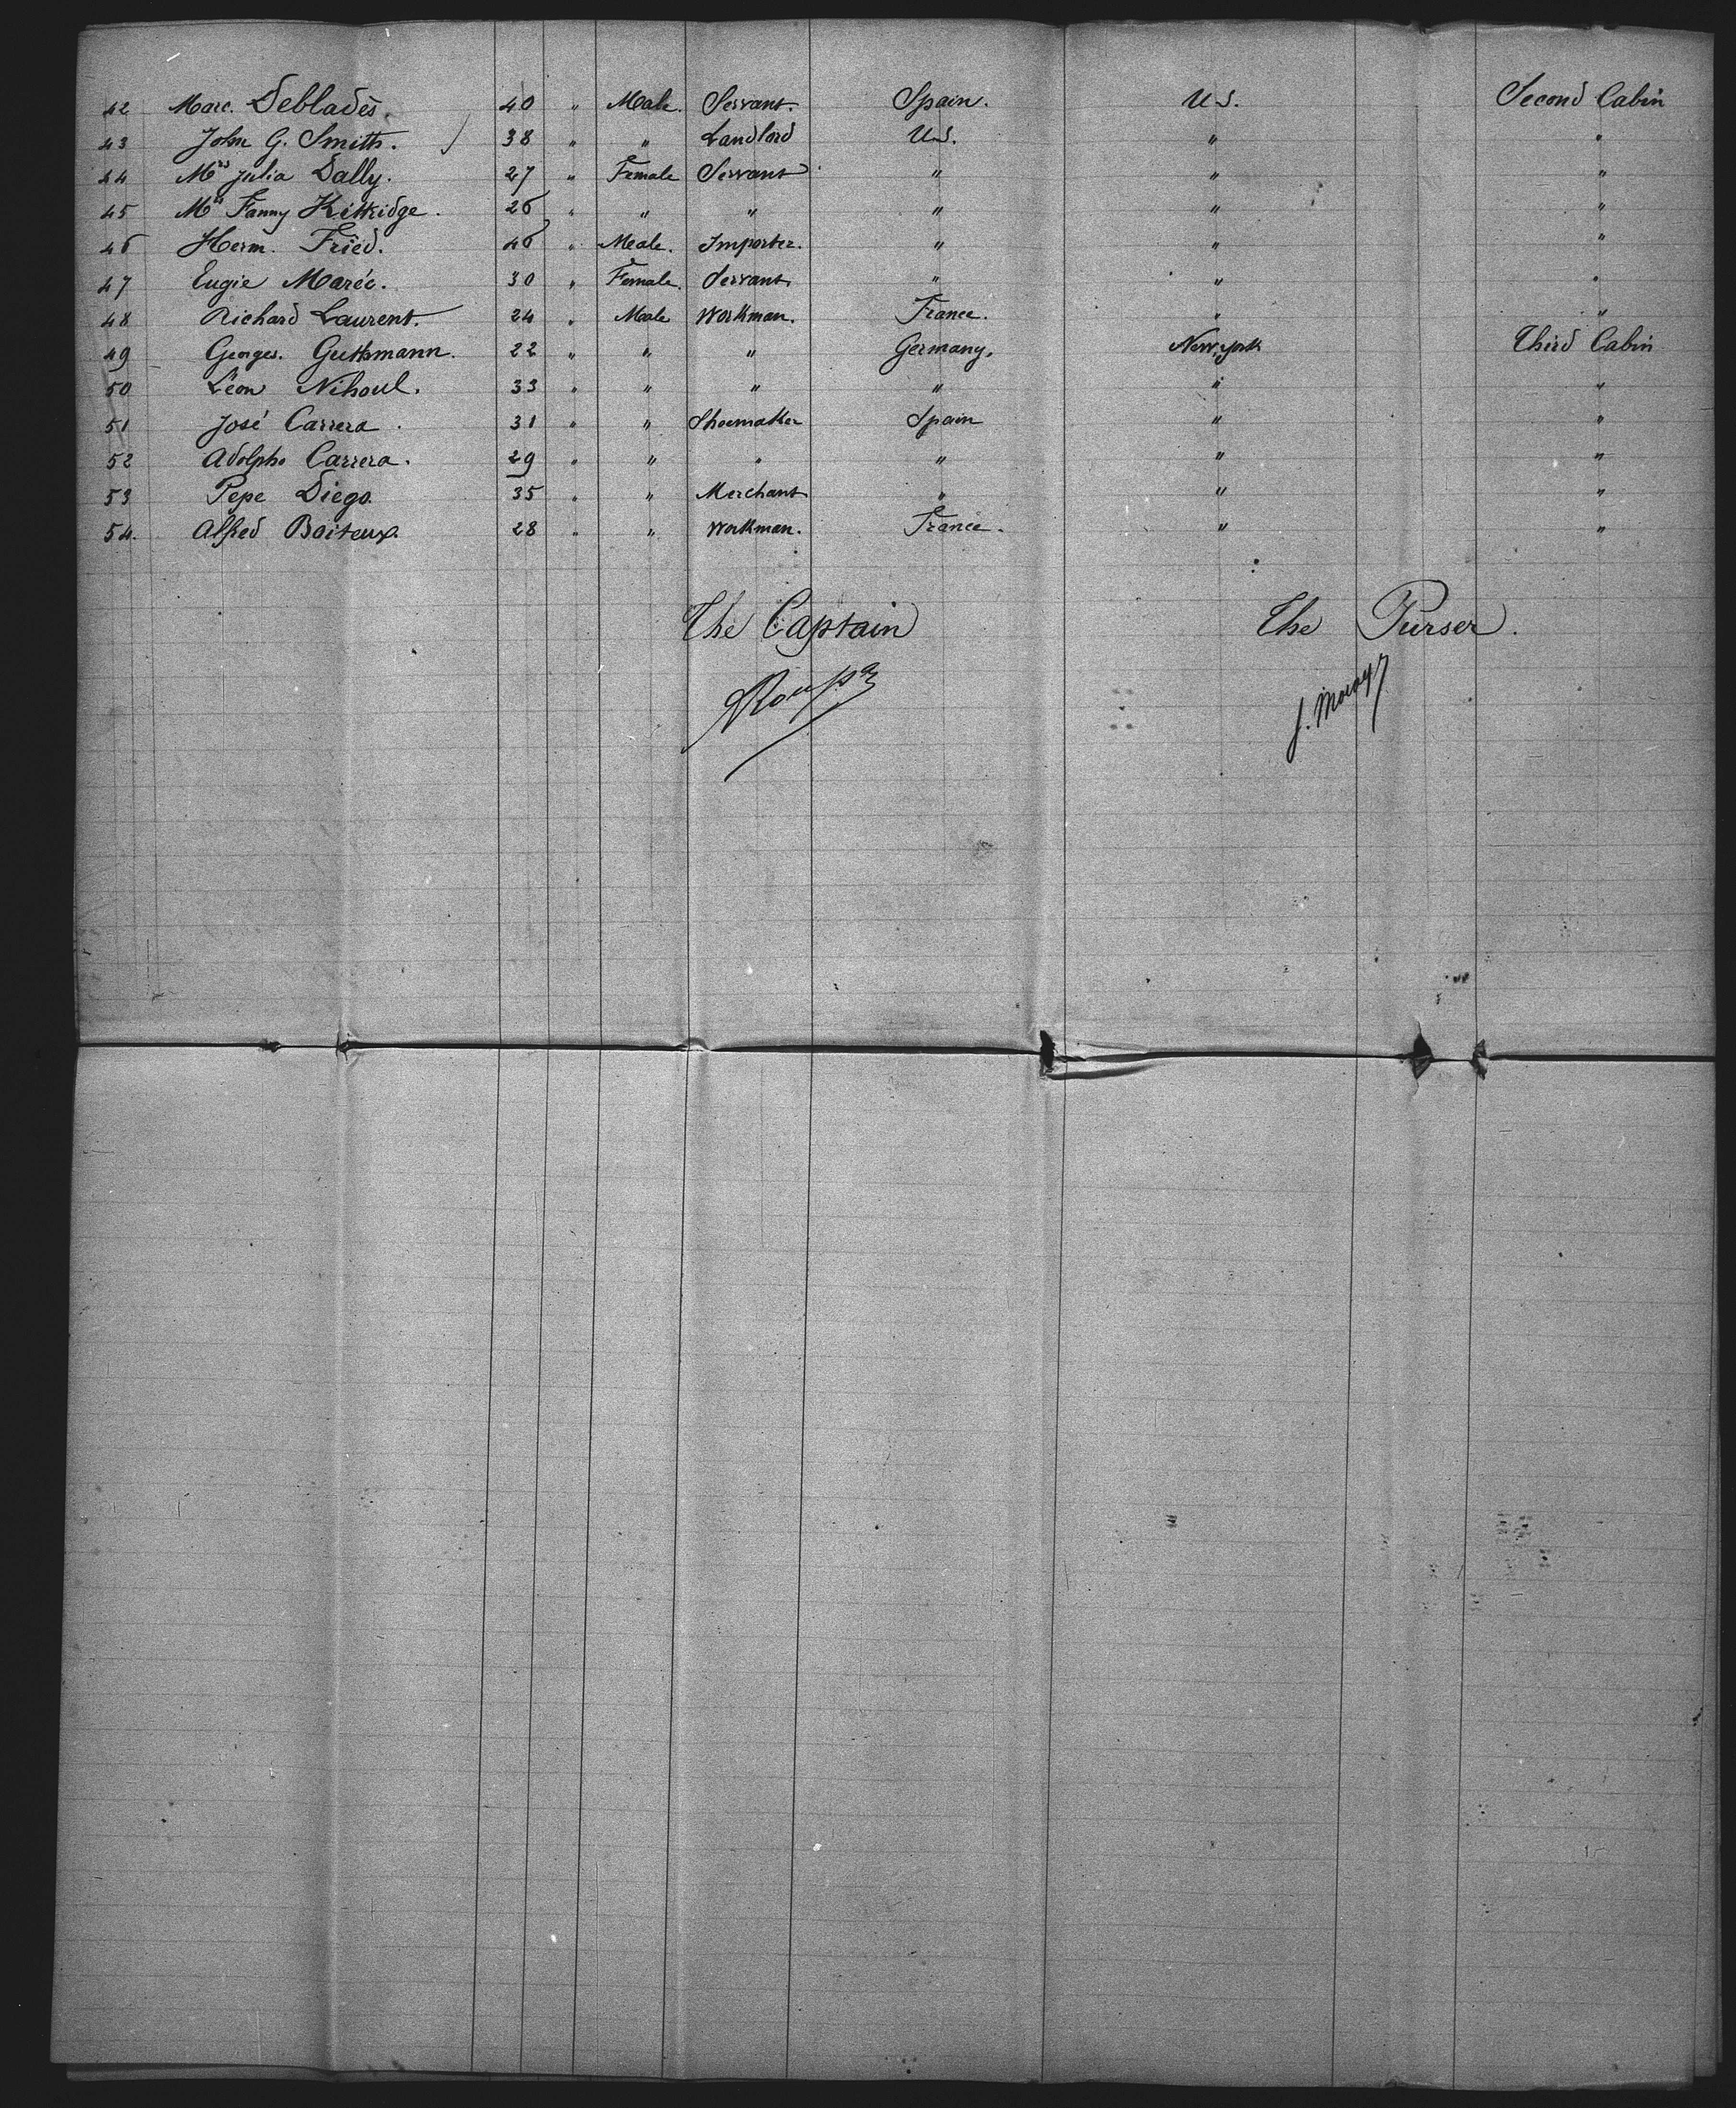 42 Marc. Debladès. 40 " Male. Servant. Spain. U.S. Second Cabin
43 John G. Smith. 38 " " Landlord U.S. " "
44 Mrs Julia Dally. 27 " Female Servant " " "
45 Mrs Fanny Kittridge. 26 " " " " " "
46 Herm. Fried. 46 " Male. Importer. " " "
47 Eugie Maréc. 30 " Female. Servant " " "
48 Richard Laurent. 24 " Male Workman. France. " "
49 Georges. Guthmann. 22 " " " Germany. New york Third Cabin
50 Léon Nihoul. 33 " " " " " "
51 José Carrera. 31 " " Shoemaker Spain " "
52 Adolpho Carrera. 29 " " " " " "
53 Pepe Diego 35 " " Merchant " " "
54. Alfred Boiteux. 28 " " Workman. France. " "
The Captain The Purser.